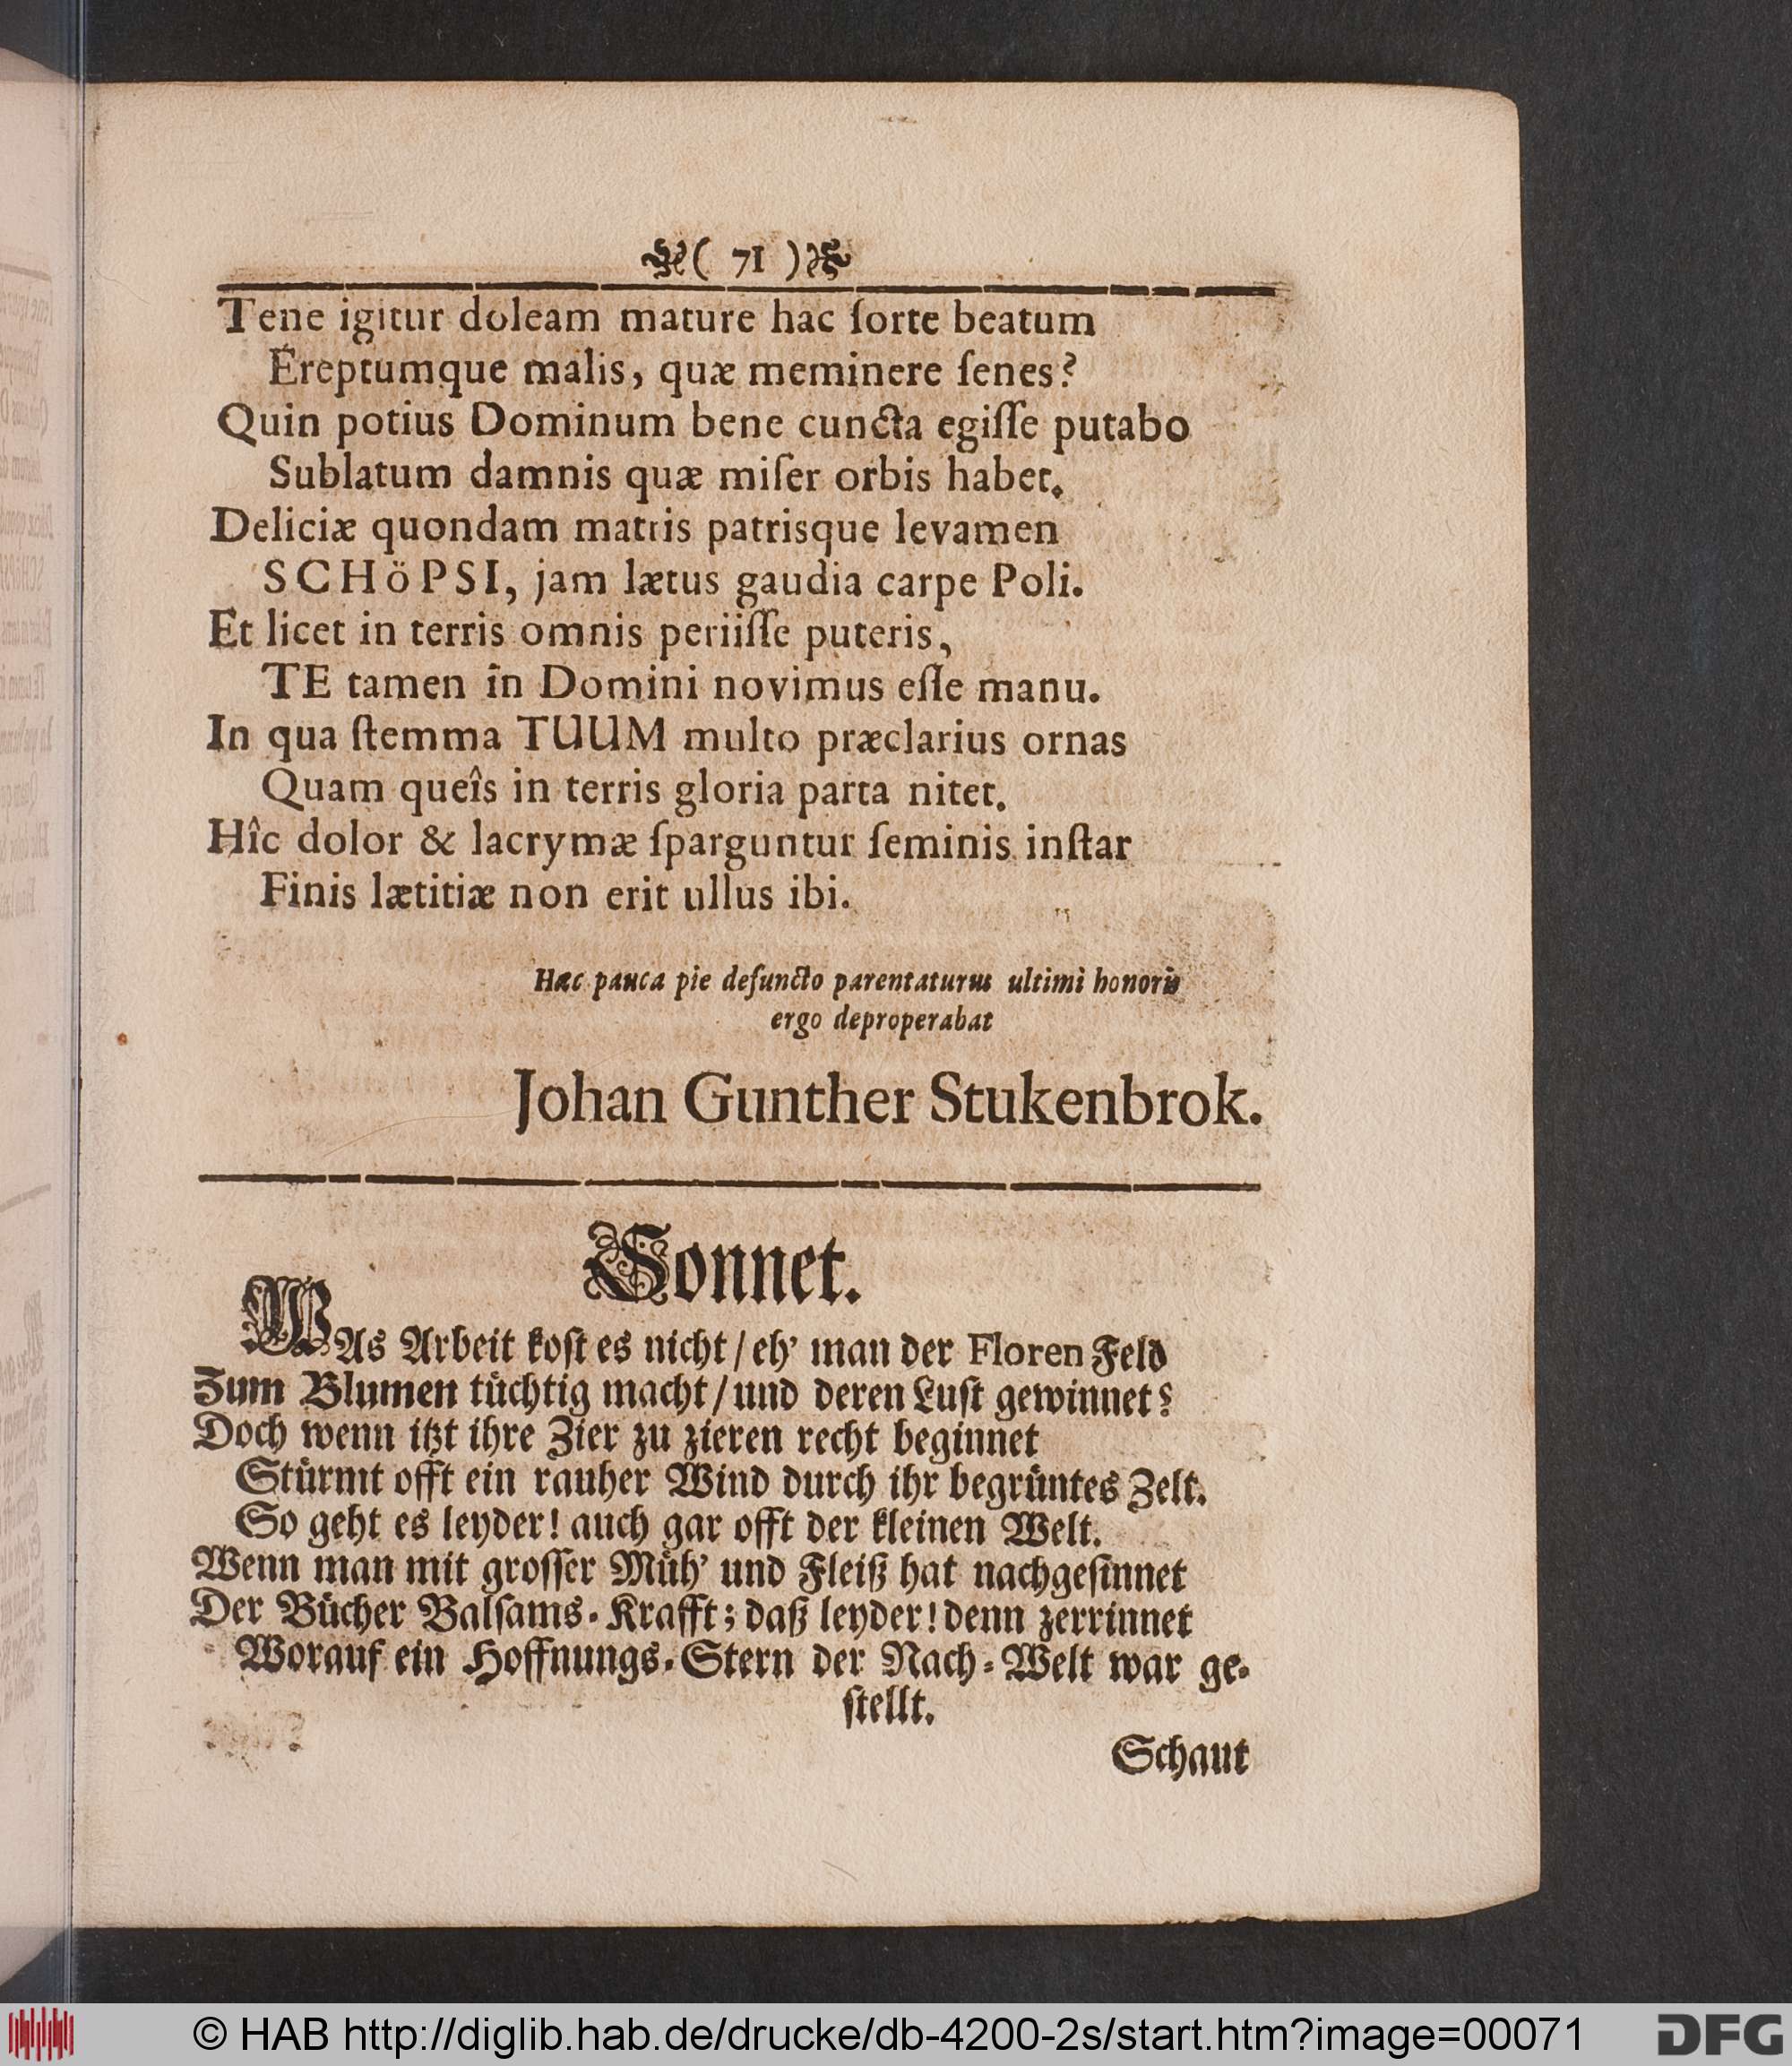 ( 71 )
Tene igitur doleam mature hac ſorte beatum
Ereptumque malis, quæ meminere ſenes?
Quin potius Dominum bene cuncta egiſſe putabo
Sublatum damnis quæ miſer orbis habet.
Deliciæ quondam matris patrisque levamen
SCHöPSI, jam lætus gaudia carpe Poli.
Et licet in terris omnis periiſſe puteris,
TE tamen in Domini novimus eſſe manu.
In qua ſtemma TUUM multo præclarius ornas
Quam queîs in terris gloria parta nitet.
Hîc dolor & lacrymæ ſparguntur ſeminis inſtar
Finis lætitiæ non erit ullus ibi.
Hæc pauca pie defuncto parentaturus ultimi honoris
ergo deproperabat
Johan Gunther Stukenbrok.
Sonnet.
WAs Arbeit koſt es nicht / eh' man der Floren Feld
Zum Blumen tüchtig macht / und deren Luſt gewinnet?
Doch wenn itzt ihre Zier zu zieren recht beginnet
Stürmt offt ein rauher Wind durch ihr begrüntes Zelt.
So geht es leyder! auch gar offt der kleinen Welt.
Wenn man mit groſſer Müh' und Fleiß hat nachgeſinnet
Der Bücher Balſams-Krafft; daß leyder! denn zerrinnet
Worauf ein Hoffnungs-Stern der Nach-Welt war ge-
ſtellt.
Schaut
© HAB http://diglib.hab.de/drucke/db-4200-2s/start.htm?image=00071
DFG